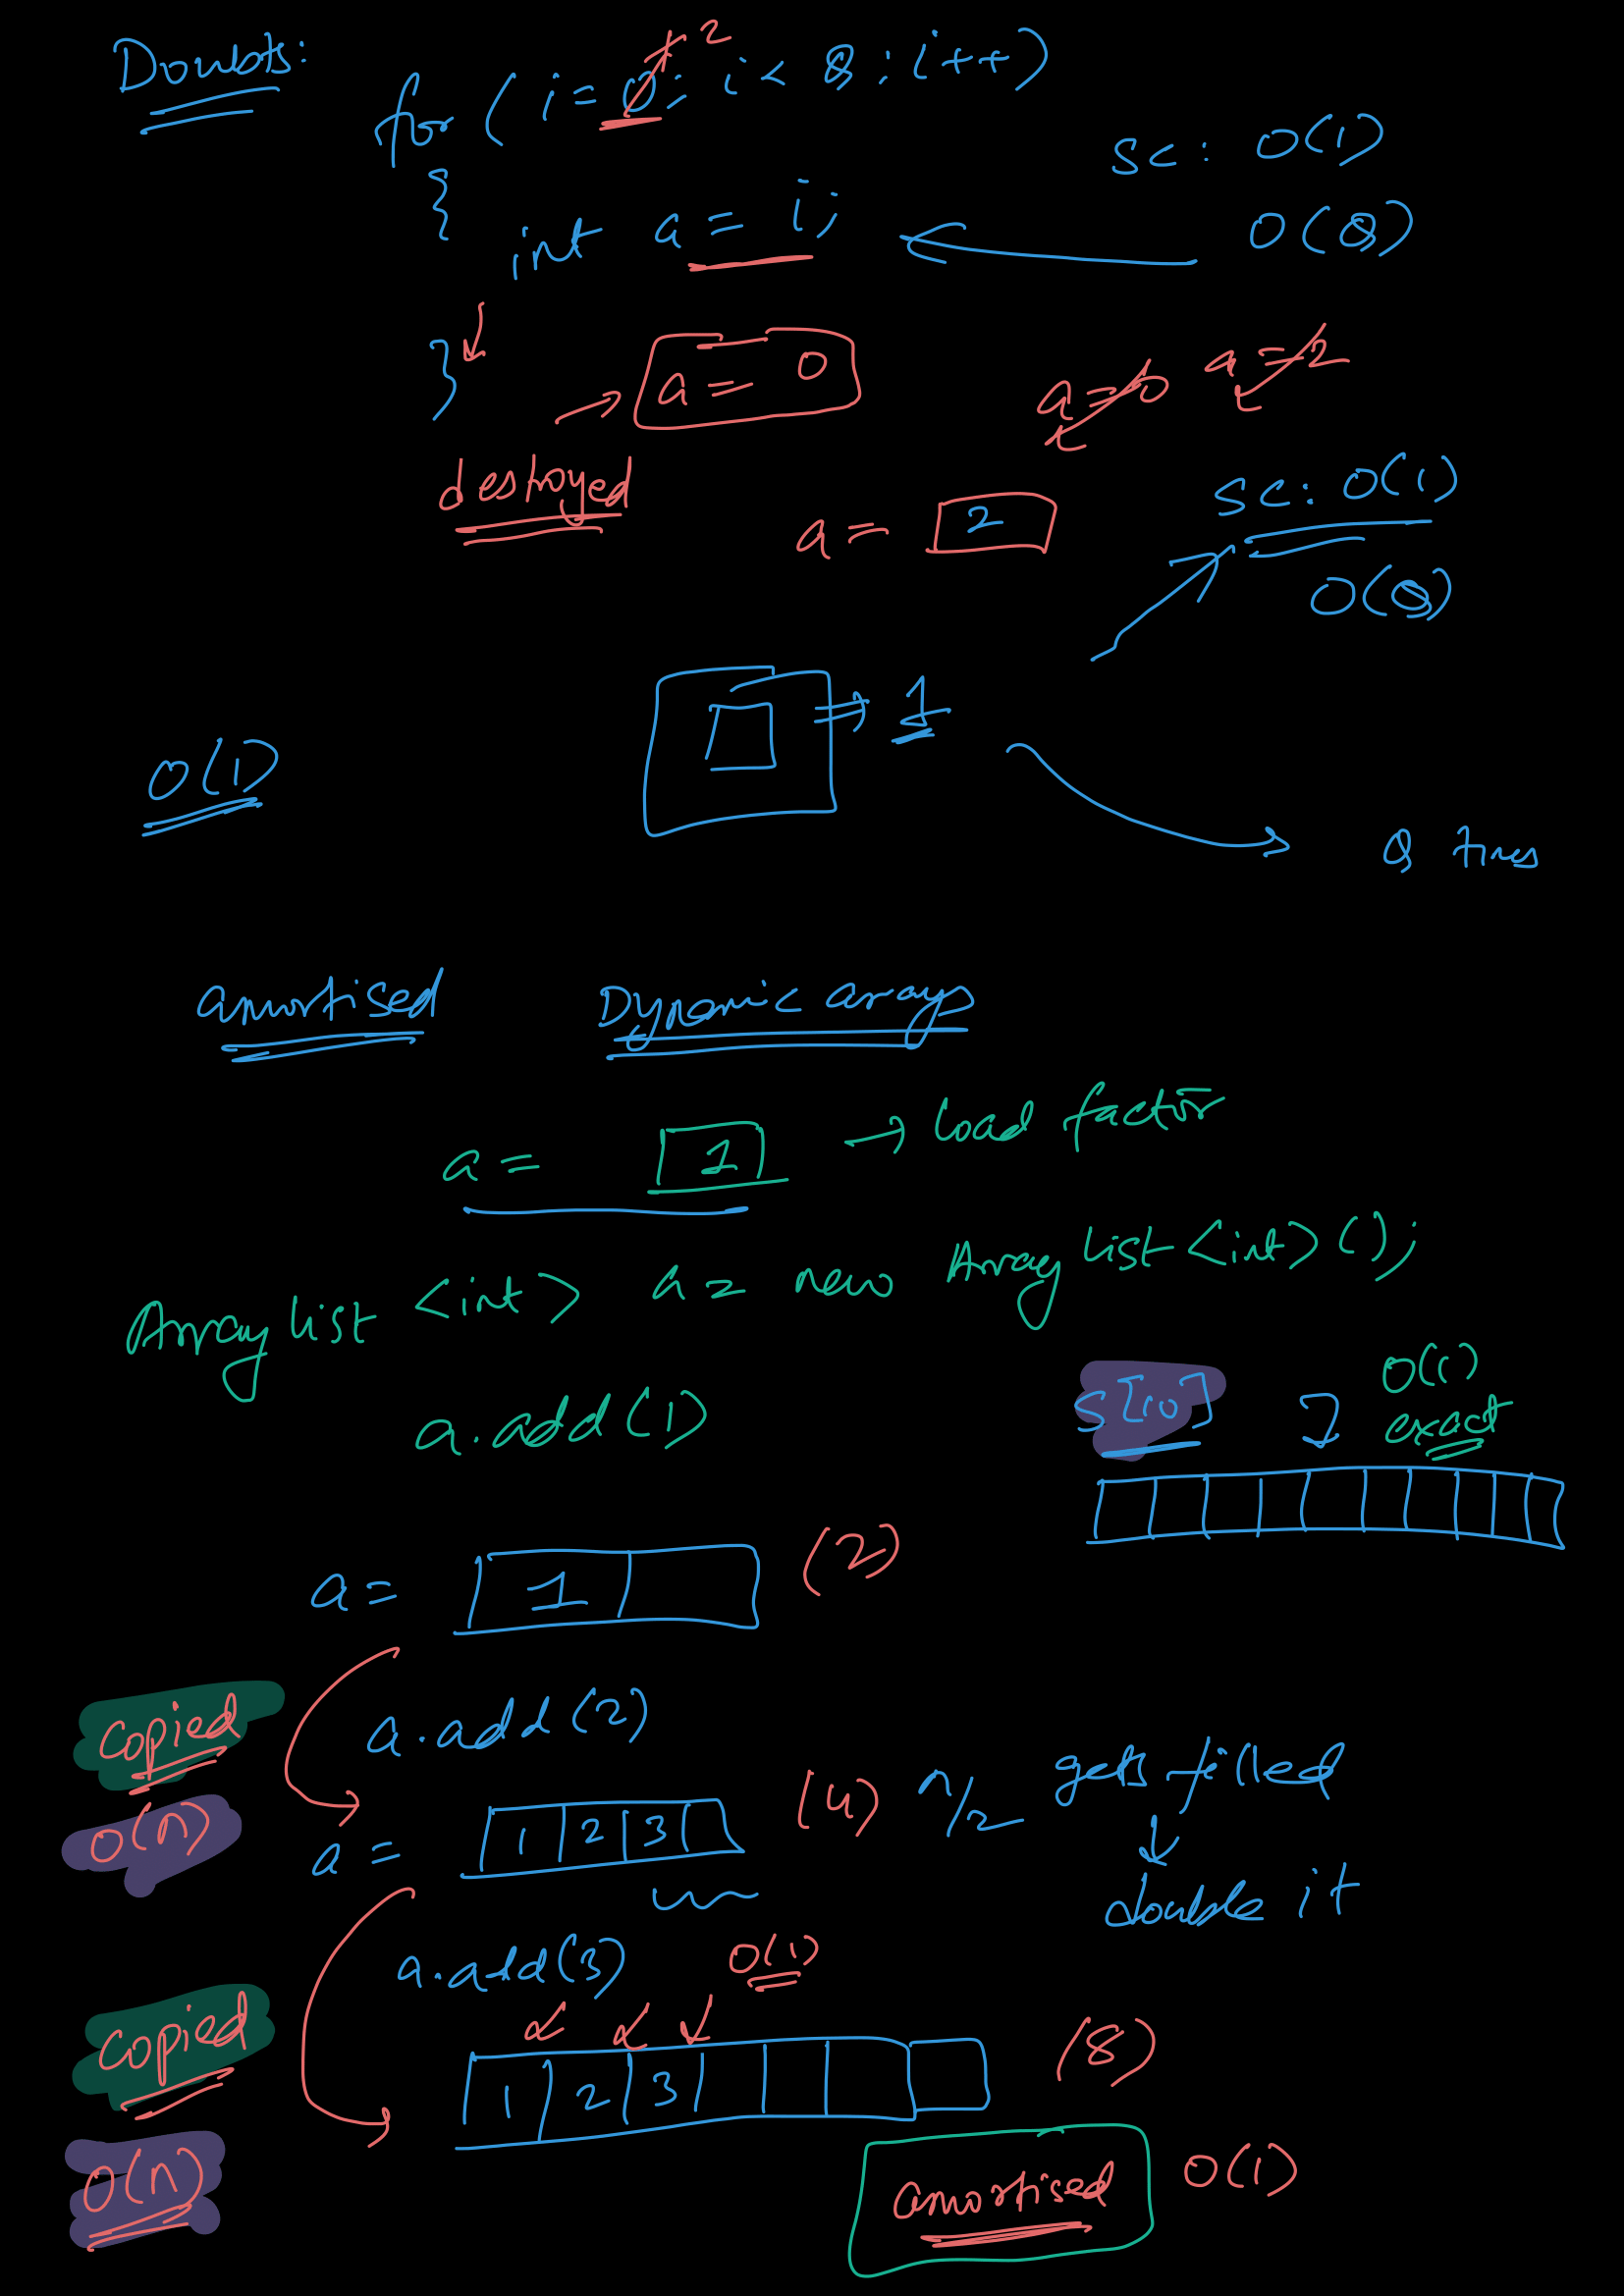 Doubts:
for ( i = 0; i < Q ; i++)
2
{
SC: O(1)
int a = i;
O(Q)
}
a = 0
a = 0 a = 2
destroyed
SC: O(1)
a = 2
O(Q)
⇒ 1
O(1)
Q times
amortised Dynamic arrays
a = 1 → load factor
Array list <int> a = new Array list <int> ();
a.add(1)
S[10] O(1)
exact
a = 1 (2)
copied a.add(2)
O(n)
a = 1 2 3 (4) n/2 gets filled
↓
double it
a.add(3) O(1)
copied
1 2 3 (8)
O(n)
amortised O(1)